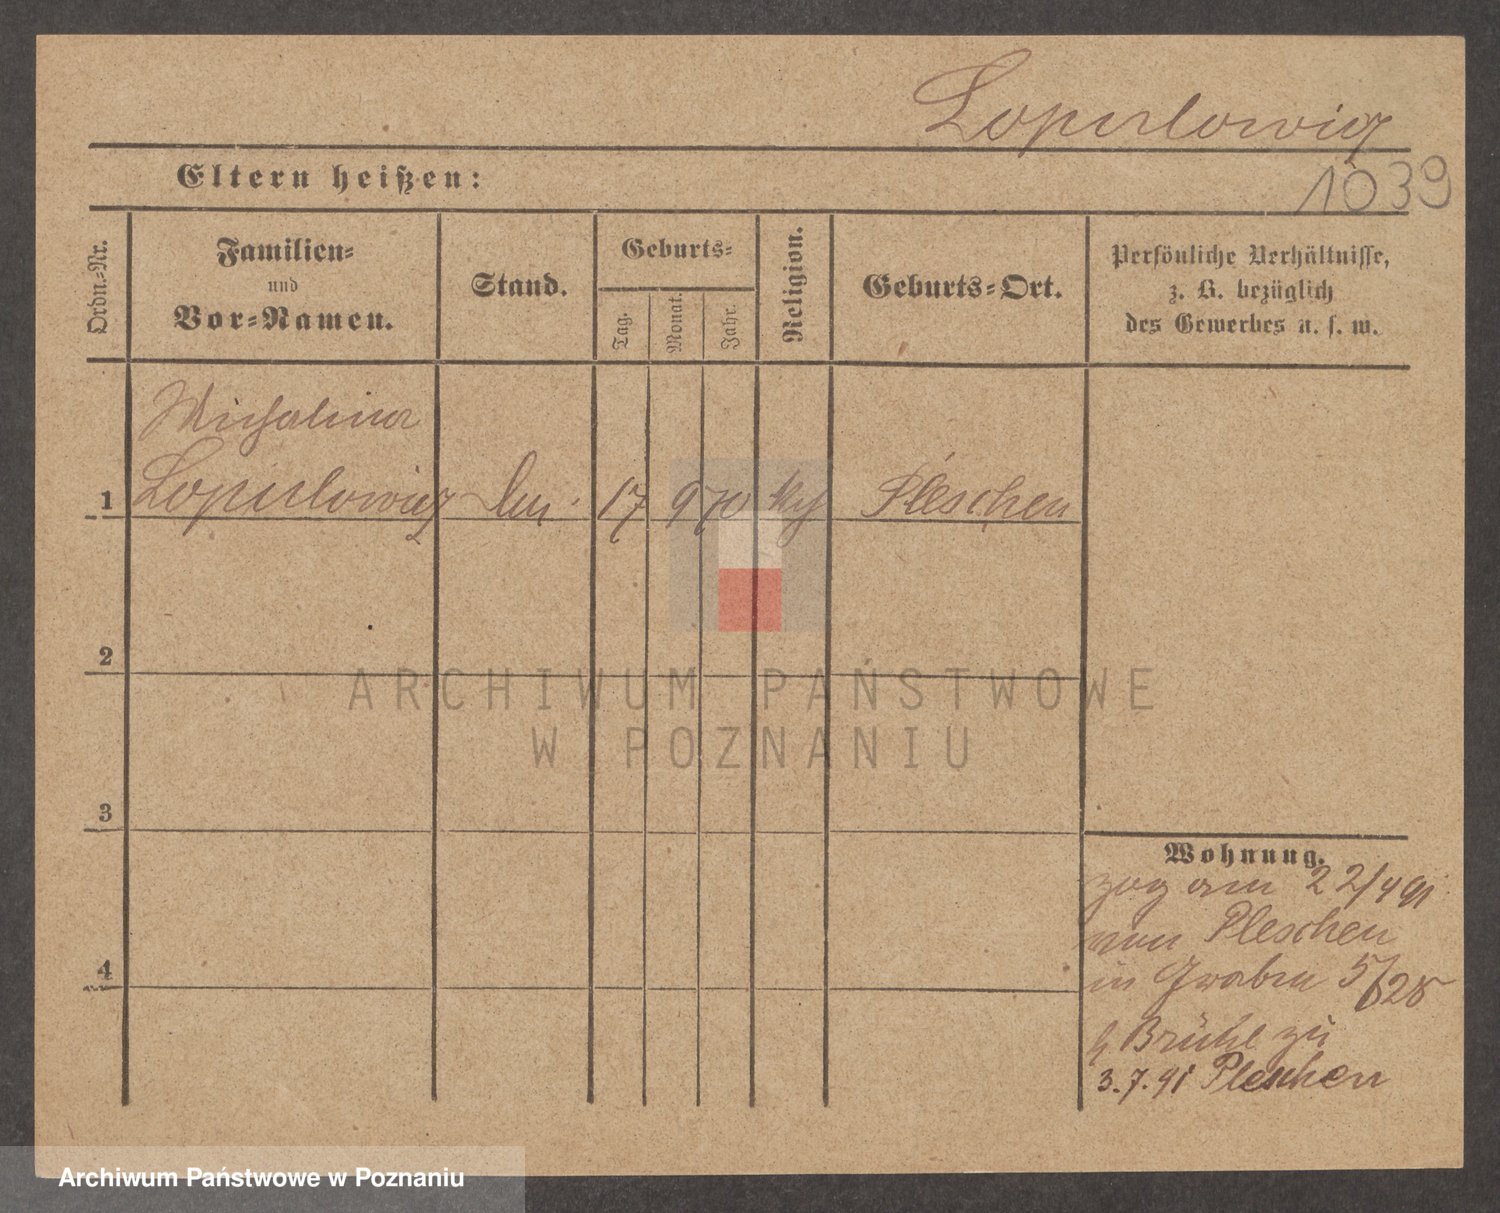 Lopuslowicz
1039
Eltern heißen:
Ordn.-Nr.
Familien-
und
Vor-Namen.
Stand.
Geburts-
Tag.
Monat.
Jahr.
Religion.
Geburts-Ort.
Persönliche Verhältnisse,
z. B. bezüglich
des Gewerbes u. s. w.
Michalina
1 17 9 70 Pleschen
2
3
4
Wohnung.
zog am 22/4 91
von Pleschen
in Graben 5/628
b Brühl zu
3.7.91 Pleschen
ARCHIWUM PAŃSTWOWE
W POZNANIU
Archiwum Państwowe w Poznaniu